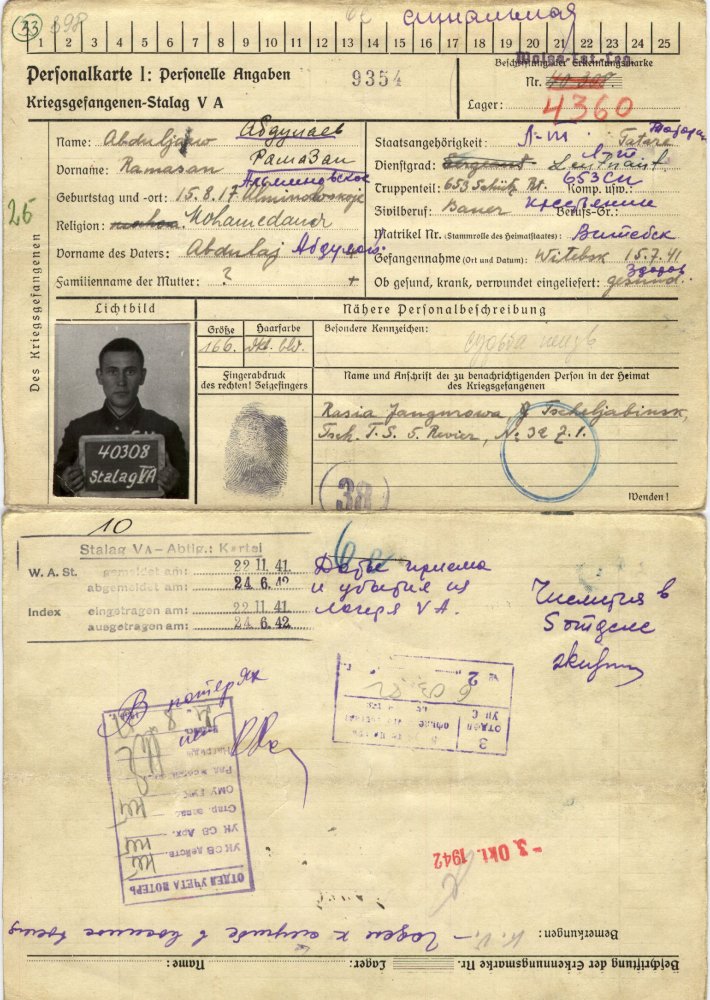 33 398 синальная
1 2 3 4 5 6 7 8 9 10 11 12 13 14 15 16 17 18 19 20 21 22 23 24 25
Personalkarte I: Personelle Angaben
9354
Kriegsgefangenen-Stalag V A
Beschriftung der Erkennungsmarke
Nr. 40308
Lager: 4360
Des Kriegsgefangenen
26
Name: Abduljaw Абдулаев
Vorname: Ramasan Рамазан
Geburtstag und -ort: 15.8.17 Alminowskoje
Religion: Mohamedaner
Vorname des Vaters: Abdulaj
Familienname der Mutter: ? +
Staatsangehörigkeit: Л-т Tatare
Dienstgrad: Sergeant Leutnant Л-т
Truppenteil: 653 Schütz. Rt. Komp. usw.: 653 СП
Zivilberuf: Bauer Berufs-Gr.:
Matrikel Nr. (Stammrolle des Heimatstaates): Витебск
Gefangennahme (Ort und Datum): Witebsk 15.7.41
Ob gesund, krank, verwundet eingeliefert: gesund. Здоров
Lichtbild
40308
Stalag VA
Größe Haarfarbe
166. dkl. bld.
Fingerabdruck
des rechten! Zeigefingers
Nähere Personalbeschreibung
Besondere Kennzeichen:
Name und Anschrift der zu benachrichtigenden Person in der Heimat
des Kriegsgefangenen
Rasia Jangurowa Tscheljabinsk,
Tsch. T. S. 5. Revier, № 32 7.1.
38
Wenden!
10
Stalag VA – Abtlg.: Kartei
W. A. St. gemeldet am: 22 11. 41.
abgemeldet am: 24. 6. 42
Index eingetragen am: 22 11. 41
ausgetragen am: 24 6. 42
Даты приема
и убытия из
лагеря VA.
Числится в
5 отделе
В потерях
3 ОТДЕЛ УК С
ОТДЕЛ УЧЕТА ПОТЕРЬ
УК СВ действ.
УК СВ Арх.
Стар. запас
ОМУ ГУК
- 3. Okt. 1942
Bemerkungen: К.У. – Годен к службе в военное время
Beschriftung der Erkennungsmarke Nr. Lager: Name: